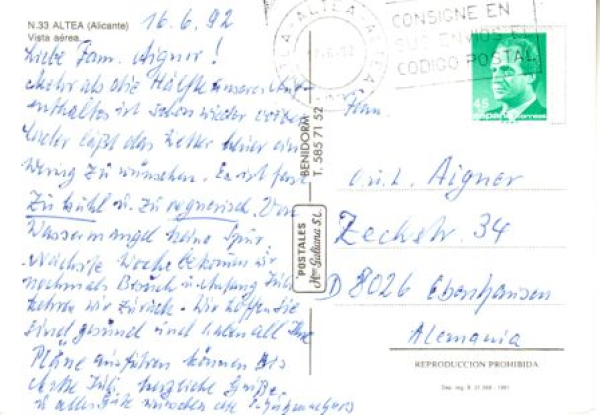 N.33 ALTEA (Alicante)
Vista aérea.
16.6.92
Liebe Fam. Aigner!
Mehr als die Hälfte unseres Auf-
enthaltes ist schon wieder vorbei
Leider läßt das Wetter heuer ein
wenig zu wünschen. Es ist fast
zu kühl u. zu regnerisch. Von
Wassermangel keine Spur.
Nächste Woche bekommen wir
nochmals Besuch u. Anfang Juli
kehren wir zurück. Wir hoffen Sie
sind gesund und haben all Ihre
Pläne ausführen können. Bis
Juli, herzliche Grüße
u. alles Gute wünschen
ALTEA ALTEA
CONSIGNE EN
SUS ENVIOS EL
CODIGO POSTAL
45
españa correos
BENIDORM
T. 585 71 52
POSTALES
Hnos Galiana S.L.
Fam.
u. L. Aigner
Zechstr. 34
D 8026 Ebenhausen
Alemania
REPRODUCCION PROHIBIDA
Dep. leg. B 1991